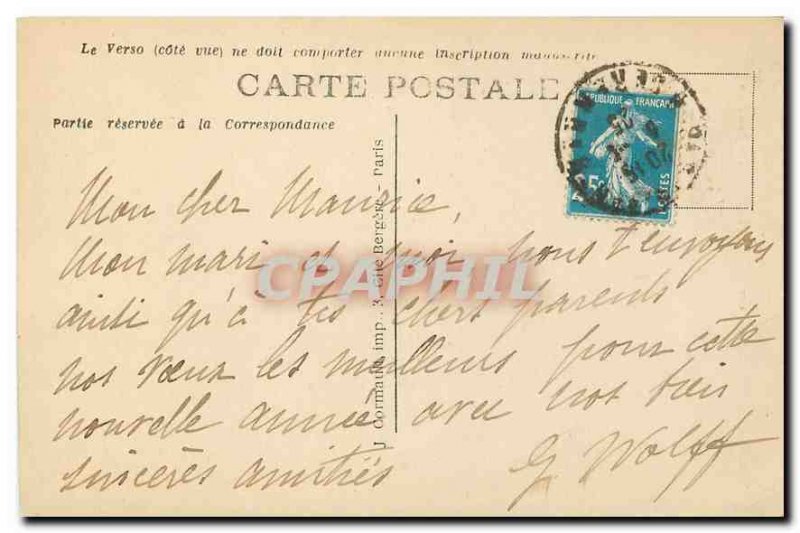 Le Verso (côté vue) ne doit comporter aucune inscription manuscrite
CARTE POSTALE
Partie réservée à la Correspondance
RÉPUBLIQUE FRANÇAISE
25c
POSTES
J. Cormault, imp., 3, Cité Bergère - Paris
Mon cher Maurice,
Mon mari et moi, nous t'envoyons
ainsi qu'à tes chers parents
nos vœux les meilleurs pour cette
nouvelle année avec nos bien
sincères amitiés
G Wolff
CPAPHIL